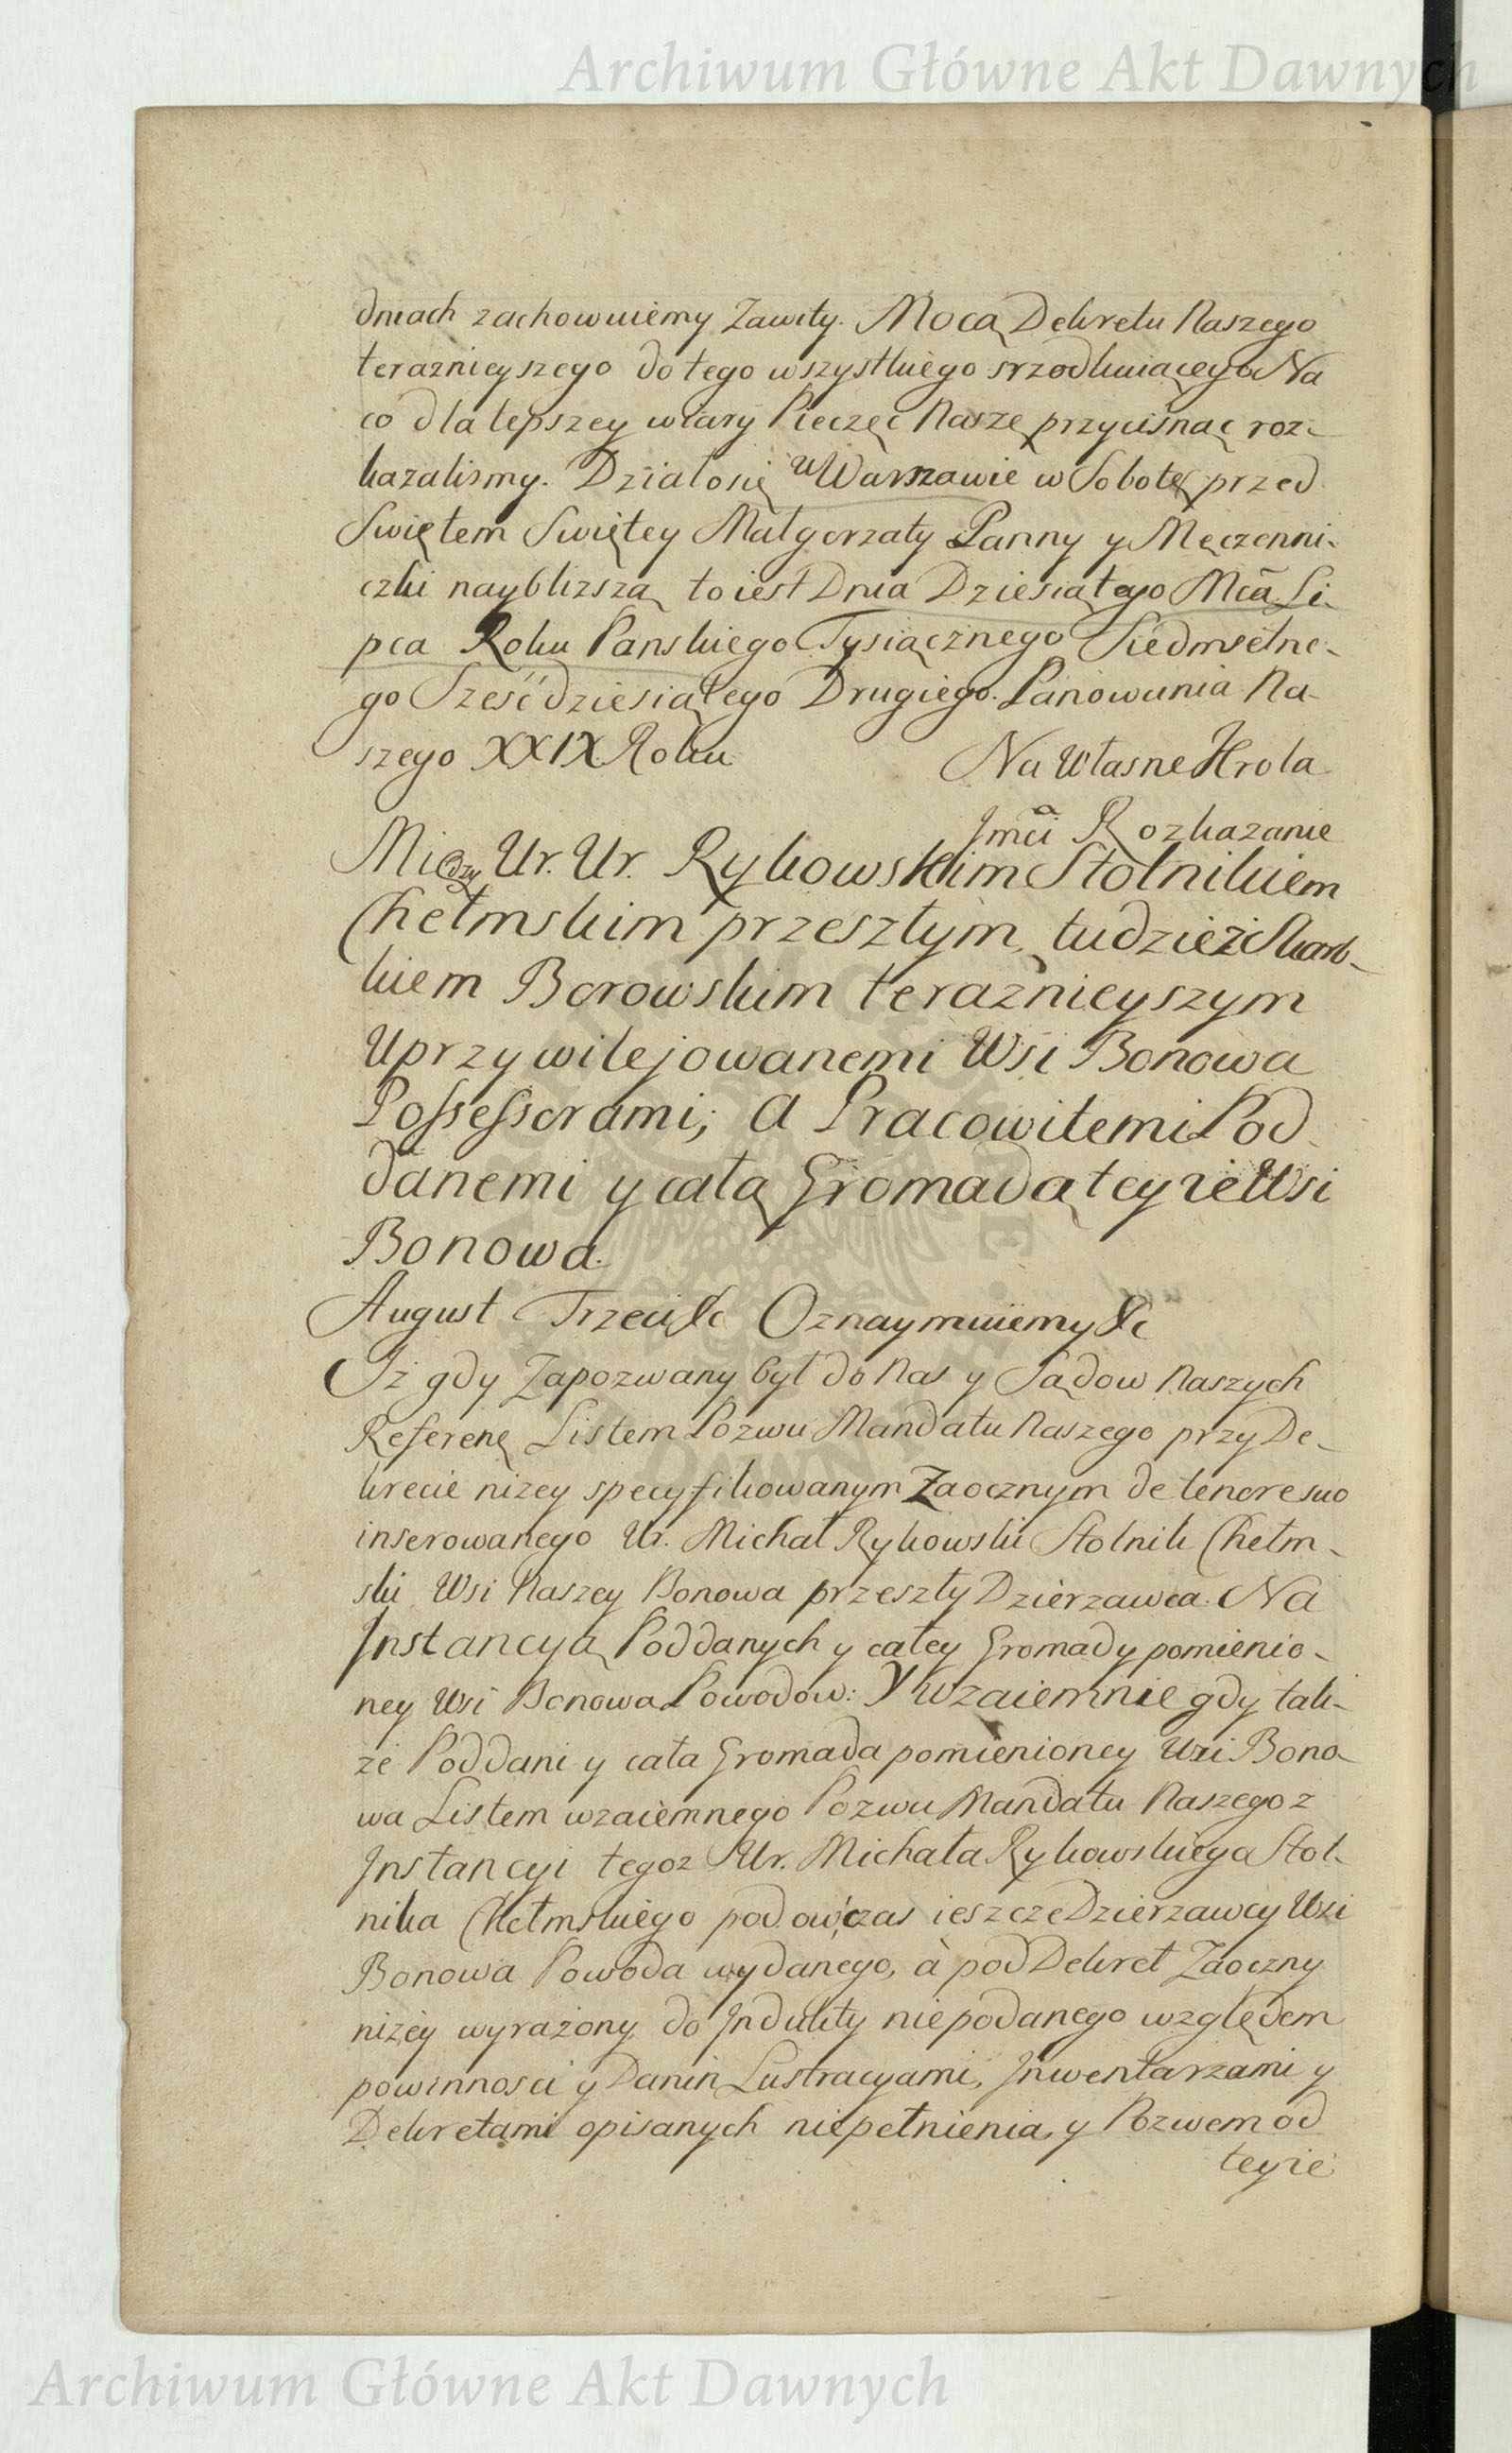 Archiwum Główne Akt Dawnych
dniach zachowuiemy Zawity. Mocą Dekretu Naszego
teraznieyszego do tego wszystkiego srzodkuiącego Na
co dla lepszey wiary Pieczęc Naszę przycisnąc roz-
kazalismy. Działosię w Warszawie w Sobotę przed
Swiętem Swiętey Małgorzaty Panny y Męczenni-
czki nayblizszą to iest Dnia Dziesiątego Mca Li-
pca Roku Panskiego Tysiącznego Siedmsetne-
go Sześćdziesiątego Drugiego. Panowania Na-
szego XXIX Roku
Na Własne Krola
Jmci Rozkazanie
Między Ur. Ur. Rykowskim Stolnikiem
Chełmskim przeszłym, tudzież Skarb-
kiem Borowskim teraznieyszym
Uprzywilejowanemi Wsi Bonowa
Possessorami; A Pracowitemi Pod
danemi y całą Gromadą teyże Wsi
Bonowa.
August Trzeci &c Oznaymuiemy &c
Iż gdy Zapozwany był do Nas y Sądow Naszych
Referenę Listem Pozwu Mandatu Naszego przy De-
krecie nizey specyfikowanym Zaocznym de tenore suo
inserowanego Ur. Michał Rykowski Stolnik Chełm-
ski Wsi Naszey Bonowa przeszły Dzierzawca. Na
Instancyą Poddanych y całey Gromady pomienio-
ney Wsi Bonowa Powodow: Y wzaiemnie gdy tak-
że Poddani y cała Gromada pomienioney Wsi Bono-
wa Listem wzaiemnego Pozwu Mandatu Naszego z
Instancyi tegoz Ur. Michała Rykowskiego Stol-
nika Chełmskiego pod owczas ieszcze Dzierzawcy Wsi
Bonowa Powoda wydanego, à pod Dekret Zaoczny
niżey wyrażony do Indukty niepodanego względem
powinnosci y Danin Lustracyami, Inwentarzami y
Dekretami opisanych niepełnienia, y Pozwem od
teyże
Archiwum Główne Akt Dawnych